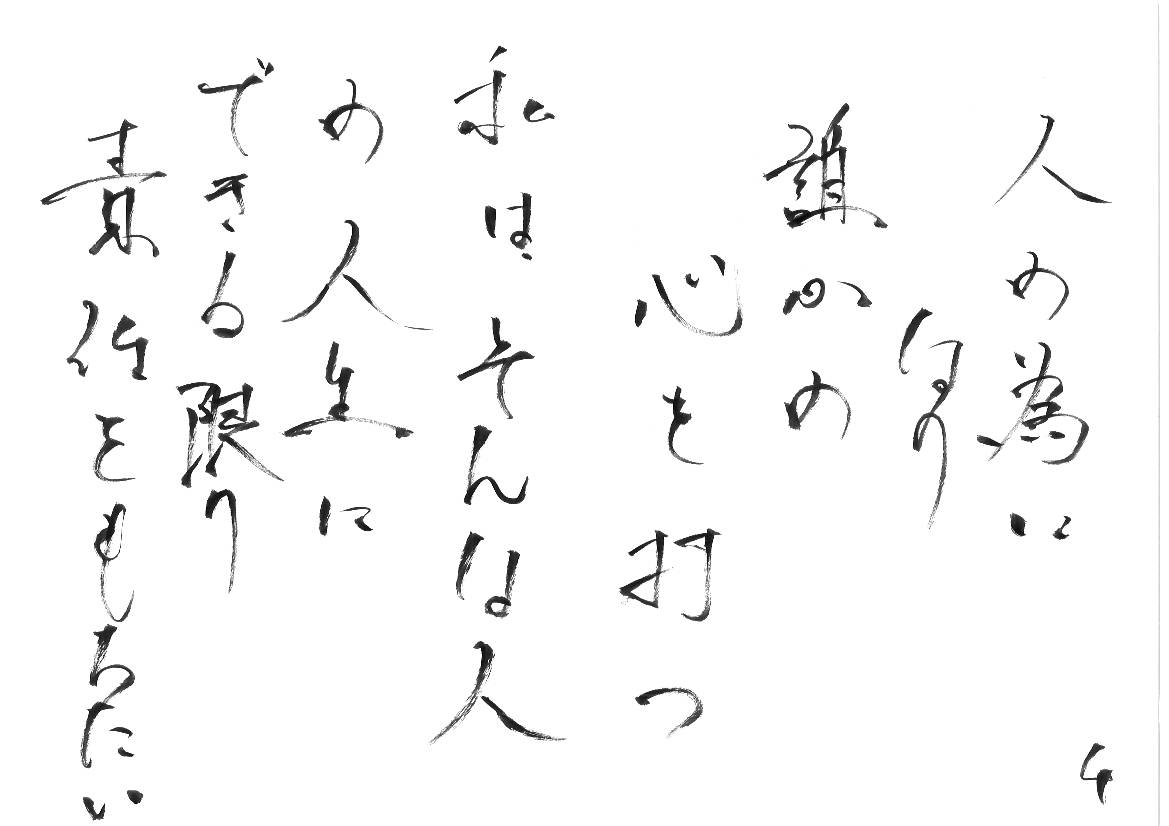 人の為に
なり
誰かの
心を打つ
私はそんな人
の人生に
できる限り
責任をもちたい
4